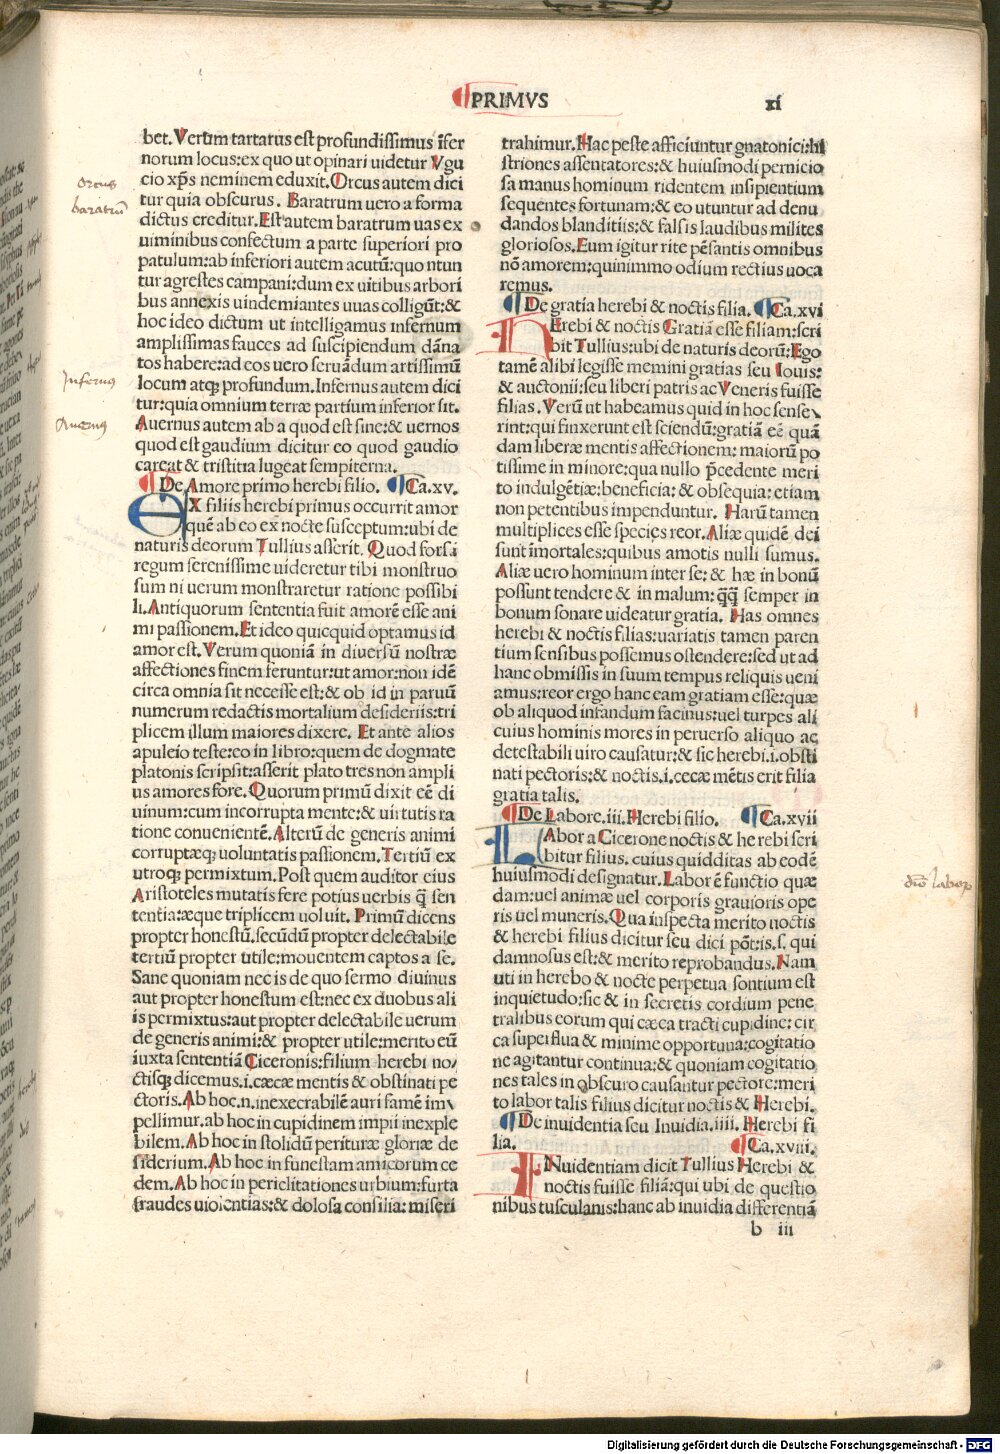 PRIMVS
xi
bet. Verum tartarus est profundissimus ĩfer
norum locus: ex quo ut opinari uidetur Vgu
cio xp̃s neminem eduxit. Orcus autem dici
tur quia obscurus. Baratrum uero a forma
dictus creditur. Est autem baratrum uas ex
uiminibus confectum a parte superiori pro
patulum: ab inferiori autem acutũ: quo utun
tur agrestes campani: dum ex uitibus arbori
bus annexis uindemiantes uuas colligũt: &
hoc ideo dictum ut intelligamus infernum
amplissimas fauces ad suscipiendum dãna
tos habere: ad eos uero seruãdum artissimũ
locum atq; profundum. Infernus autem dici
tur: quia omnium terræ partium inferior sit.
Auernus autem ab a quod est sine: & uernos
quod est gaudium dicitur eo quod gaudio
careat & tristitia lugeat sempiterna.
De Amore primo herebi filio. Ca. xv.
EX filiis herebi primus occurrit amor
quẽ ab eo ex nocte susceptum: ubi de
naturis deorum Tullius asserit. Quod forsã
regum serenissime uideretur tibi monstruo
sum ni uerum monstraretur ratione possibi
li. Antiquorum sententia fuit amorẽ esse ani
mi passionem. Et ideo quicquid optamus id
amor est. Verum quoniã in diuersũ nostræ
affectiones finem feruntur: ut amor: non idẽ
circa omnia sit necesse est: & ob id in paruũ
numerum redactis mortalium desideriis: tri
plicem illum maiores dixere. Et ante alios
apuleio teste: eo in libro: quem de dogmate
platonis scripsit: asserit plato tres non ampli
us amores fore. Quorum primũ dixit eẽ di
uinum: cum incorrupta mente: & uirtutis ra
tione conuenientẽ. Alterũ de generis animi
corruptæq; uoluntatis passionem. Tertiũ ex
utroq; permixtum. Post quem auditor eius
Aristoteles mutatis fere potius uerbis q̃ sen
tentia: æque triplicem uoluit. Primũ dicens
propter honestũ. secũdũ propter delectabile
tertiũ propter utile: mouentem captos a se.
Sane quoniam nec is de quo sermo diuinus
aut propter honestum est: nec ex duobus ali
is permixtus: aut propter delectabile uerum
de generis animi: & propter utile: merito eũ
iuxta sententiã Ciceronis: filium herebi no/
ctisq; dicemus. i. cæcæ mentis & obstinati pe
ctoris. Ab hoc. n. inexecrabilẽ auri famẽ im
pellimur. ab hoc in cupidinem imperii inexple
bilem. Ab hoc in stolidũ perituræ gloriæ de
siderium. Ab hoc in funestam amicorum ce
dem. Ab hoc in periclitationes urbium: furta
fraudes uiolentias: & dolosa consilia: miseri
trahimur. Hac peste afficiuntur gnatonici: hi
striones assentatores: & huiusmodi pernicio
sa manus hominum ridentem insipientium
sequentes fortunam: & eo utuntur ad denu
dandos blanditiis: & falsis laudibus milites
gloriosos. Eum igitur rite pẽsantis omnibus
nõ amorem: quinimmo odium rectius uoca
remus.
De gratia herebi & noctis filia. Ca. xvi
HErebi & noctis Gratiã esse filiam: scri
bit Tullius: ubi de naturis deorũ: Ego
tamẽ alibi legisse memini gratias seu Iouis:
& auctonii: seu liberi patris ac Veneris fuisse
filias. Verũ ut habeamus quid in hoc sense
rint: qui finxerunt est sciendũ: gratiã eẽ quã
dam liberæ mentis affectionem: maiorũ po
tissime in minore: qua nullo p̃cedente meri
to indulgẽtiæ: beneficia: & obsequia: etiam
non petentibus impenduntur. Harũ tamen
multiplices esse species reor. Aliæ quidẽ dei
sunt ĩmortales: quibus amotis nulli sumus.
Aliæ uero hominum inter se: & hæ in bonũ
possunt tendere & in malum: q̃q̃ semper in
bonum sonare uideatur gratia. Has omnes
herebi & noctis filias: uariatis tamen paren
tium sensibus possemus ostendere: sed ut ad
hanc obmissis in suum tempus reliquis ueni
amus: reor ergo hanc eam gratiam esse: quæ
ob aliquod infandum facinus: uel turpes ali
cuius hominis mores in peruerso aliquo ac
detestabili uiro causatur: & sic herebi. i. obsti
nati pectoris: & noctis. i. cecæ mẽtis erit filia
gratia talis.
De Labore. iii. Herebi filio. Ca. xvii
LAbor a Cicerone noctis & herebi scri
bitur filius. cuius quidditas ab eodẽ
huiusmodi designatur. Labor ẽ functio quæ
dam: uel animæ uel corporis grauioris ope
ris uel muneris. Qua inspecta merito noctis
& herebi filius dicitur seu dici põt: is. s. qui
damnosus est: & merito reprobandus. Nam
uti in herebo & nocte perpetua sontium est
inquietudo: sic & in secretis cordium pene
tralibus eorum qui cæca tracti cupidine: cir
ca superflua & minime opportuna: cogitatio
ne agitantur continua: & quoniam cogitatio
nes tales in obscuro causantur pectore: meri
to labor talis filius dicitur noctis & Herebi.
De inuidentia seu Inuidia. iiii. Herebi fi
lia. Ca. xviii.
INuidentiam dicit Tullius Herebi &
noctis fuisse filiã: qui ubi de questio
nibus tusculanis: hanc ab inuidia differentiã
b iii
orcus
baratrũ
Infernus
Auernus
Digitalisierung gefördert durch die Deutsche Forschungsgemeinschaft - DFG